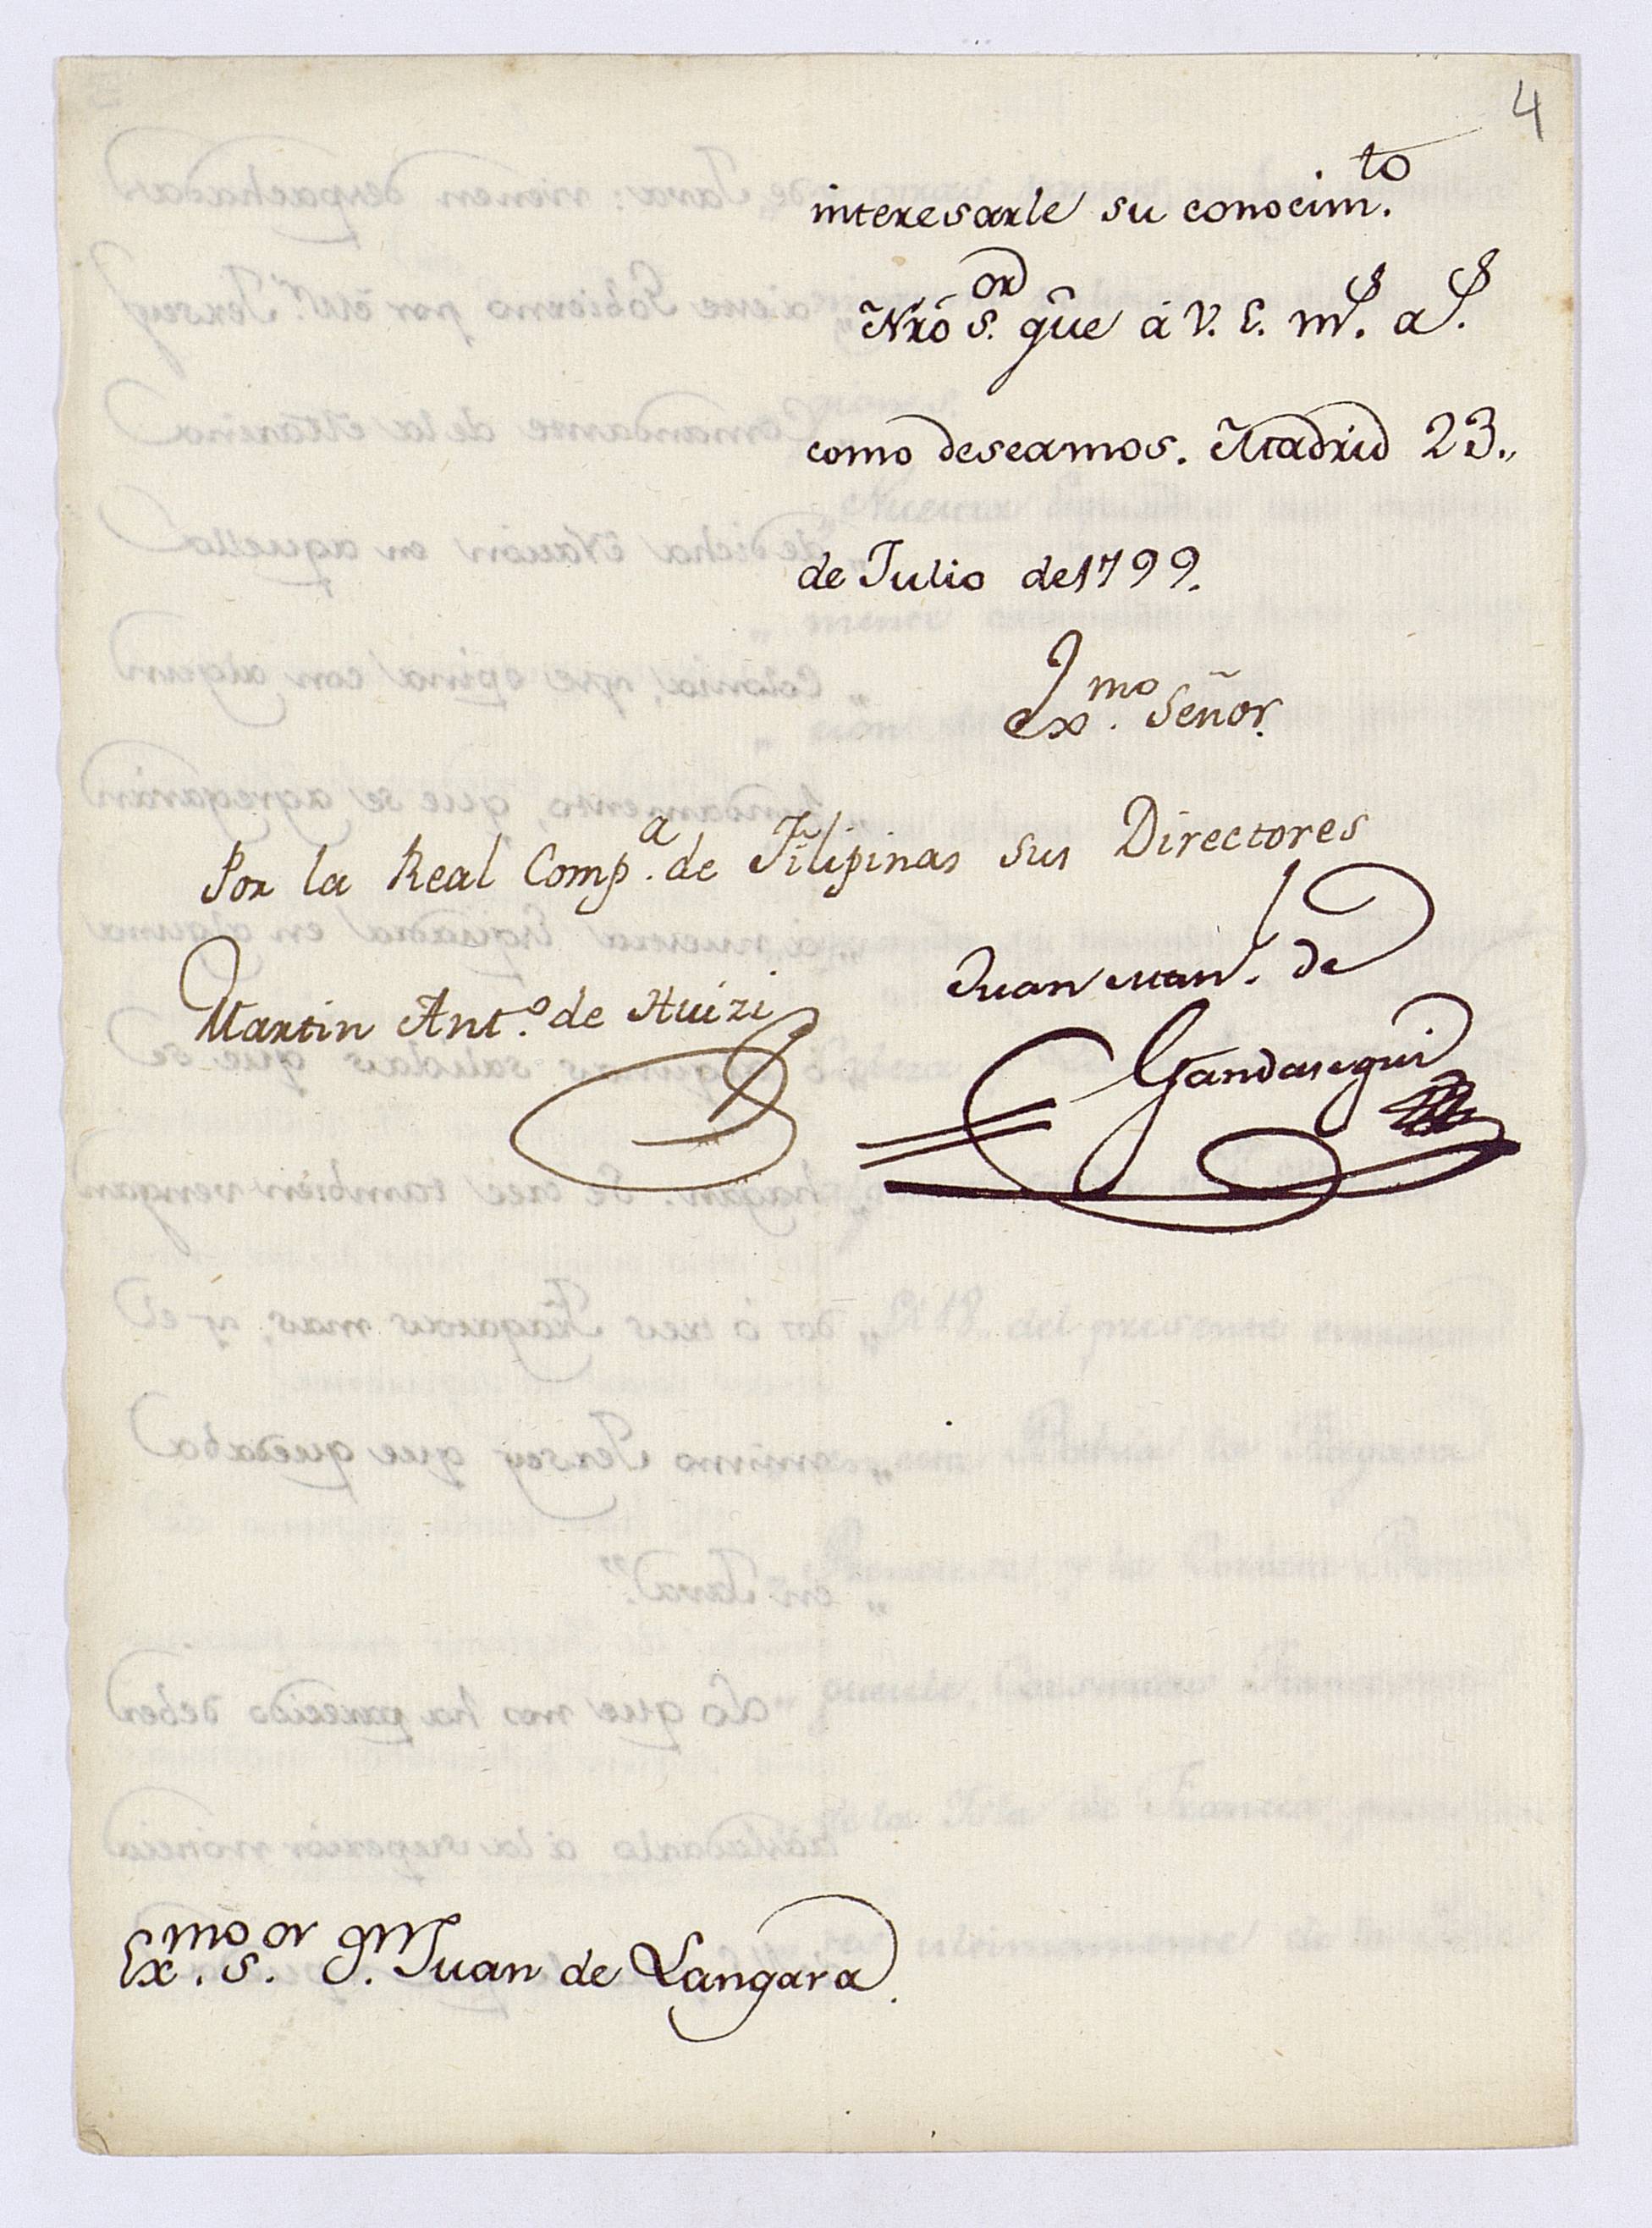 4
interesarle su conocim.to
Nrô S.or gũe á V. E. m.s a.s
como deseamos. Madrid 23.,
de Julio de 1799.
Ex.mo Señor.
Por la Real Comp.a de Filipinas sus Directores
Martin Ant.o de Huizi
Juan Man.l de
Gandasegui
Ex.mo S.or D.n Juan de Langara.